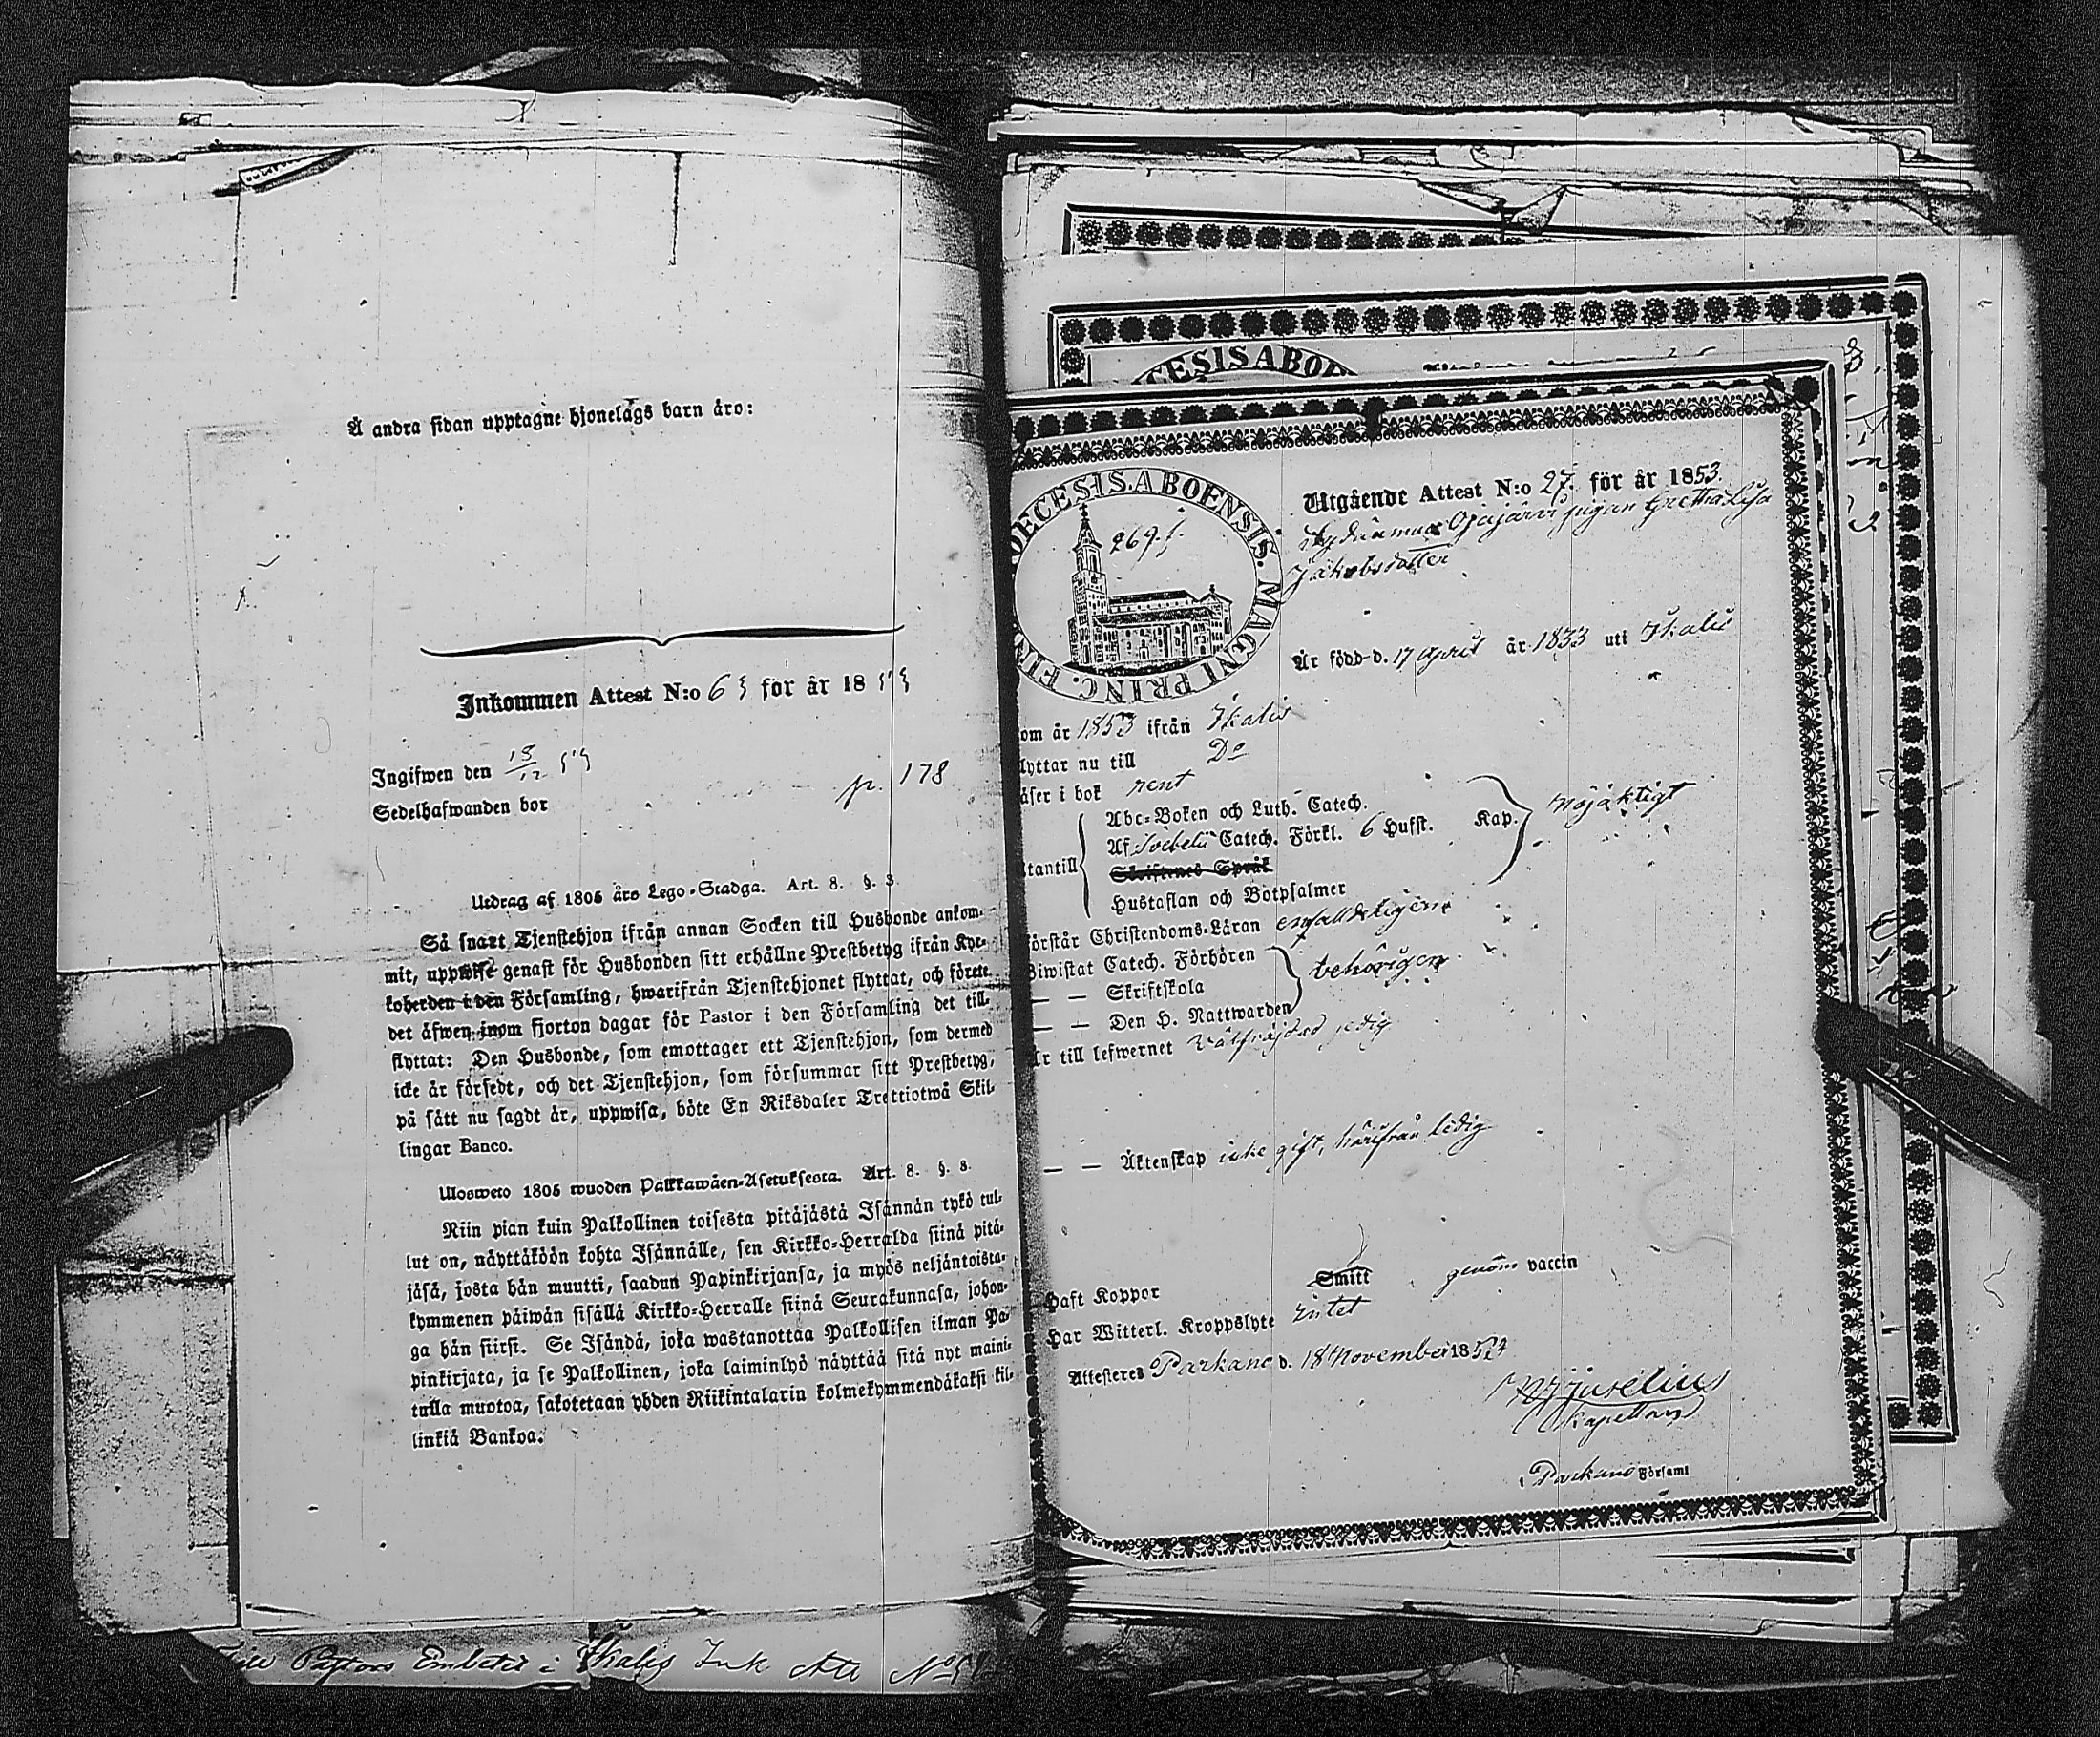 Å andra sidan upptagne hjonelags barn äro:
Inkommen Attest N:o 63 för år 1853
Ingifwen den 18/12 53
Sedelhafwanden bor p. 178
Utdrag af 1805 års Lego-Stadga. Art. 8. §. 3.
Så snart Tjenstehjon ifrån annan Socken till Husbonde ankom-
mit, uppwise genast för Husbonden sitt erhållne Prestbetyg ifrån Kyr-
koherden i den Församling, hwarifrån Tjenstehjonet flyttat, och förete
det äfwen inom fjorton dagar för Pastor i den Församling det till-
flyttat: Den Husbonde, som emottager ett Tjenstehjon, som dermed
icke är försedt, och det Tjenstehjon, som försummar sitt Prestbetyg,
på sätt nu sagdt är, uppwisa, böte En Riksdaler Trettiotwå Skil-
lingar Banco.
Ulosweto 1805 wuoden Palkkawäen-Asetuksesta. Art. 8. §. 3.
Niin pian kuin Palkollinen toisesta pitäjästä Isännän tykö tul-
lut on, näyttäköön kohta Isännälle, sen Kirkko-Herralda siinä pitä-
jäsä, josta hän muutti, saadun Papinkirjansa, ja myös neljäntoista-
kymmenen päiwän sisällä Kirkko-Herralle siinä Seurakunnasa, johon-
ga hän siirsi. Se Isändä, joka wastanottaa Palkollisen ilman Pa-
pinkirjata, ja se Palkollinen, joka laiminlyö näyttää sitä nyt maini-
tulla muotoa, sakotetaan yhden Riikintalarin kolmekymmendäkaksi kil-
linkiä Bankoa.
Pastors Embetet i Ikalis Ink Atte No
ECESIS ABOE
DIOECESIS. ABOENSIS. MAGNI PRINC. FIN
269.
Utgående Attest N:o 27. för år 1853.
Ojajärvi pigan Gretha Lisa
Jakobsdotter
Är född d. 17 April år 1833 uti Ikalis
om år 1853 ifrån Ikalis
lyttar nu till Do
äser i bok rent
Abc-Boken och Luth. Catech.
Af Svebelii Catech. Förkl. 6 Hufst. Kap. nöjaktigt
tantill Skriftenes Språk
Hustaflan och Botpsalmer
örstår Christendoms-Läran enfalldeligen
Biwistat Catech. Förhören
— — Skriftskola behörigen
— — Den H. Nattwarden
r till lefwernet välfräjdad pedig
— — Äktenskap icke gift, härifrån ledig
Haft Koppor Smitt genom vaccin
Har Witterl. Kroppslyte intet
Attesteres Parkano d. 18 November 1853
Juselius
Kapellan
Parkano Församl